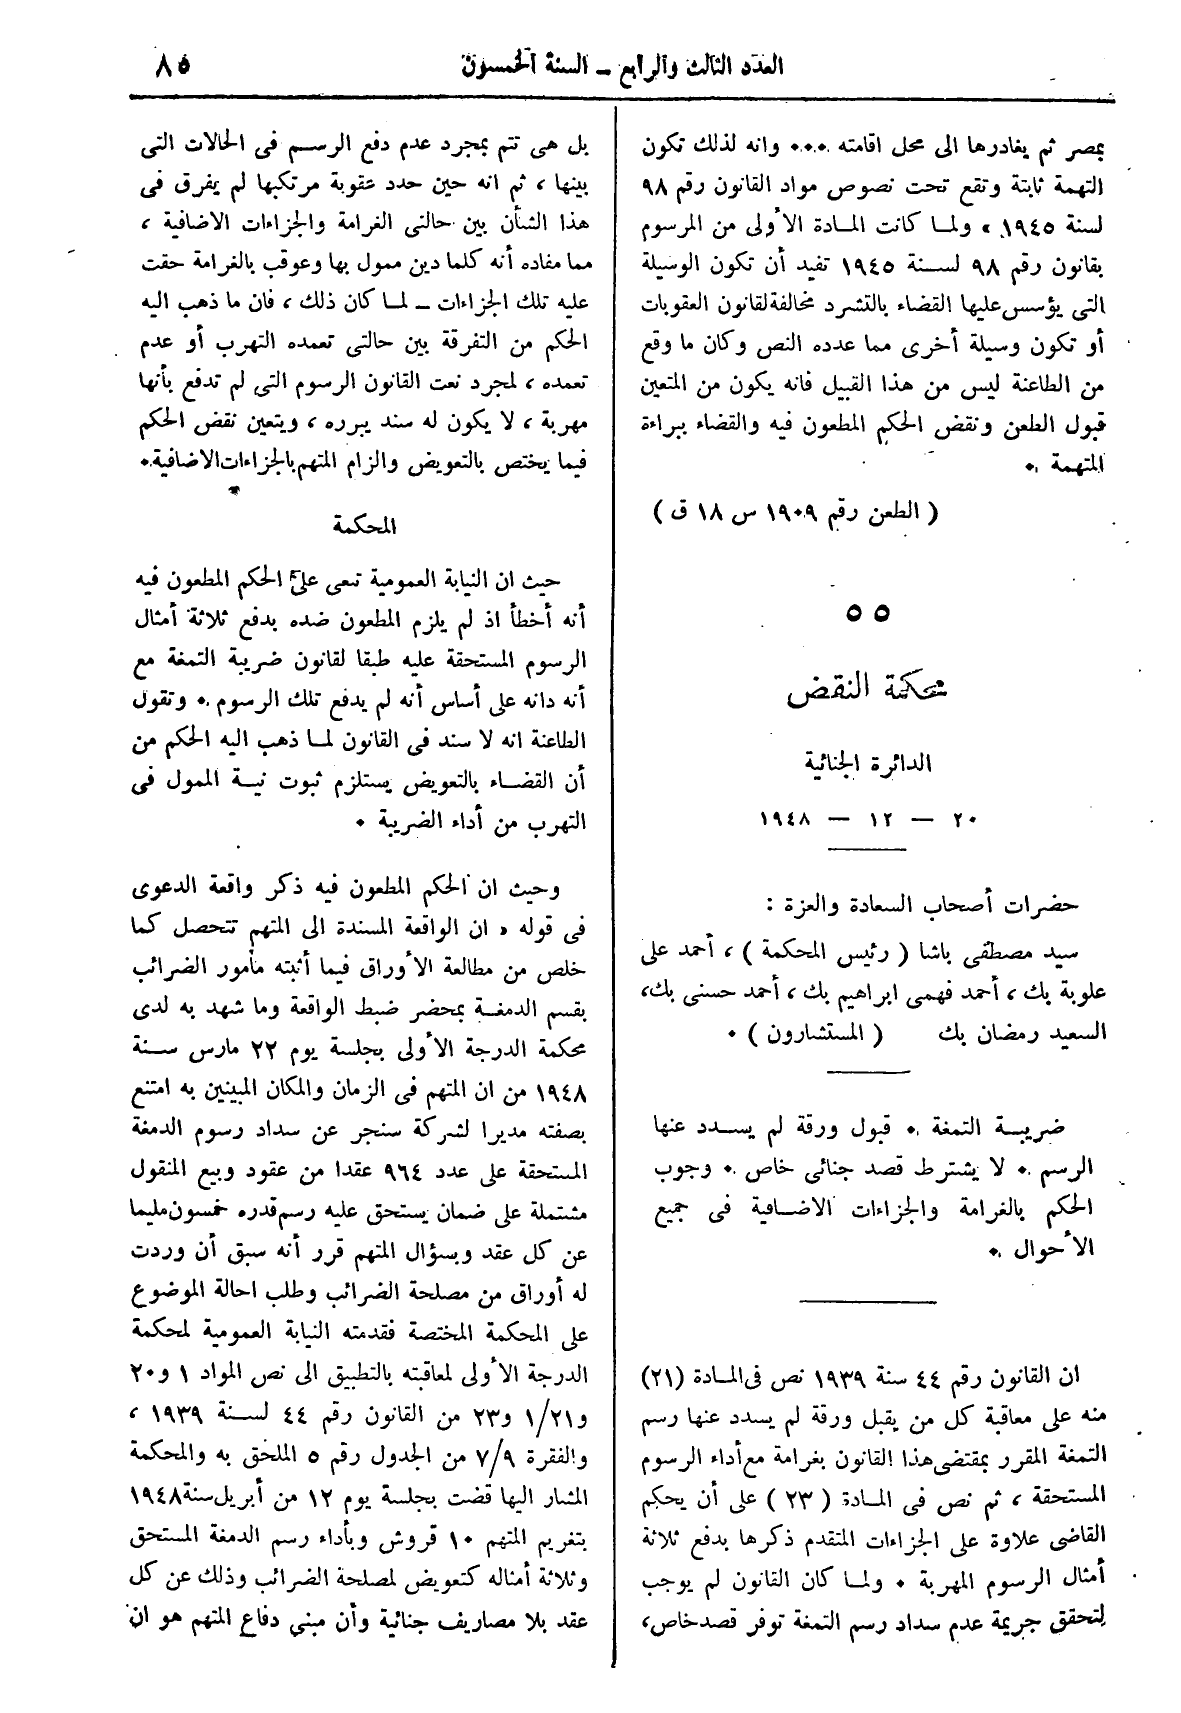 العدد الثالث والرابع – السنة الخمسون
٨٥
بمصر ثم يغادرها الى محل اقامته ٠٠٠ وانه لذلك تكون
التهمة ثابتة وتقع تحت نصوص مواد القانون رقم ٩٨
لسنة ١٩٤٥ » ولمـا كانت المـادة الأولى من المرسوم
بقانون رقم ٩٨ لسـنة ١٩٤٥ تفيد أن تكون الوسيلة
التى يؤسس عليها القضاء بالتشرد مخالفة لقانون العقوبات
أو تكون وسيلة أخرى مما عدده النص وكان ما وقع
من الطاعنة ليس من هذا القبيل فانه يكون من المتعين
قبول الطعن ونقض الحكم المطعون فيه والقضاء ببراءة
المتهمة ٠
( الطعن رقم ١٩٠٩ س ١٨ ق )
٥٥
محكمة النقض
الدائرة الجنائية
٢٠ — ١٢ — ١٩٤٨
حضرات أصحاب السعادة والعزة :
سيد مصطفى باشا ( رئيس المحكمة ) ، أحمد على
علوبة بك ، أحمد فهمى ابراهيم بك ، أحمد حسنى بك،
السعيد رمضان بك ( المستشارون ) ٠
ضريبـة التمغة ٠ قبول ورقة لم يسـدد عنها
الرسم ٠ لا يشترط قصد جنائى خاص ٠ وجوب
الحكم بالغرامة والجزاءات الاضـافية فى جميع
الأحوال ٠
ان القانون رقم ٤٤ سنة ١٩٣٩ نص فى المـادة (٢١)
منه على معاقبة كل من يقبل ورقة لم يسدد عنها رسم
التمغة المقرر بمقتضى هذا القانون بغرامة مع أداء الرسوم
المستحقة ، ثم نص فى المـادة ( ٢٣ ) على أن يحكم
القاضى علاوة على الجزاءات المتقدم ذكرها بدفع ثلاثة
أمثال الرسوم المهربة ٠ ولمـا كان القانون لم يوجب
لتحقق جريمة عدم سداد رسم التمغة توفر قصد خاص،
بل هى تتم بمجرد عدم دفع الرسـم فى الحالات التى
بينها ، ثم انه حين حدد عقوبة مرتكبها لم يفرق فى
هذا الشأن بين حالتى الغرامة والجزاءات الاضافية ،
مما مفاده أنه كلما دين ممول بها وعوقب بالغرامة حقت
عليه تلك الجزاءات – لمـا كان ذلك ، فان ما ذهب اليه
الحكم من التفرقة بين حالتى تعمده التهرب أو عدم
تعمده ، لمجرد نعت القانون الرسوم التى لم تدفع بأنها
مهربة ، لا يكون له سند يبرره ، ويتعين نقض الحكم
فيما يختص بالتعويض والزام المتهم بالجزاءات الاضافية.
المحكمة
حيث ان النيابة العمومية تنعى على الحكم المطعون فيه
أنه أخطأ اذ لم يلزم المطعون ضده بدفع ثلاثة أمثال
الرسوم المستحقة عليه طبقا لقانون ضريبة التمغة مع
أنه دانه على أساس أنه لم يدفع تلك الرسوم ٠ وتقول
الطاعنة انه لا سند فى القانون لمـا ذهب اليه الحكم من
أن القضـاء بالتعويض يستلزم ثبوت نيـة الممول فى
التهرب من أداء الضريبة ٠
وحيث ان الحكم المطعون فيه ذكر واقعة الدعوى
فى قوله « ان الواقعة المسندة الى المتهم تتحصل كما
خلص من مطالعة الأوراق فيما أثبته مأمور الضرائب
بقسم الدمغـة بمحضر ضبط الواقعة وما شهد به لدى
محكمة الدرجة الأولى بجلسة يوم ٢٢ مارس سـنة
١٩٤٨ من ان المتهم فى الزمان والمكان المبينين به امتنع
بصفته مديرا لشركة سنجر عن سداد رسوم الدمغة
المستحقة على عدد ٩٦٤ عقدا من عقود وبيع المنقول
مشتملة على ضمان يستحق عليه رسم قدره خمسون مليما
عن كل عقد وبسؤال المتهم قرر أنه سبق أن وردت
له أوراق من مصلحة الضرائب وطلب احالة الموضوع
على المحكمة المختصة فقدمته النيابة العمومية لمحكمة
الدرجة الأولى لمعاقبته بالتطبيق الى نص المواد ١ و٢٠
و١/٢١ و٢٣ من القانون رقم ٤٤ لسـنة ١٩٣٩ ،
والفقرة ٧/٩ من الجدول رقم ٥ الملحق به والمحكمة
المشار اليها قضت بجلسة يوم ١٢ من أبريل سنة ١٩٤٨
بتغريم المتهم ١٠ قروش وبأداء رسم الدمغة المستحق
وثلاثة أمثاله كتعويض لمصلحة الضرائب وذلك عن كل
عقد بلا مصاريف جنائية وأن مبنى دفاع المتهم هو ان